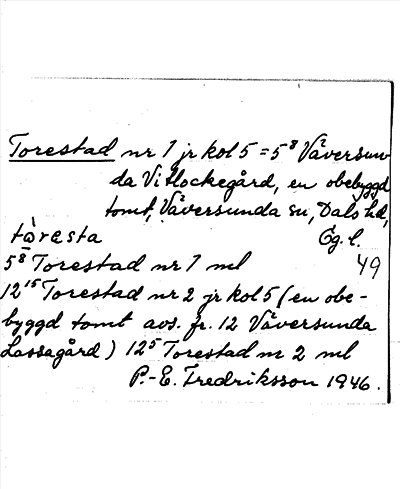 Torestad nr 1 jr kol 5 = 5⁸ Väversun
da Vitlockegård, en obebyggd
tomt, Väversunda sn, Dals hd,
tòrɛsta Ög. l.
5⁸ Torestad nr 1 ml 49
12¹⁵ Torestad nr 2 jr kol 5 (en obe-
byggd tomt avs. fr. 12 Väversunda
Lassagård) 12⁵ Torestad nr 2 ml
P.-E. Fredriksson 1946.